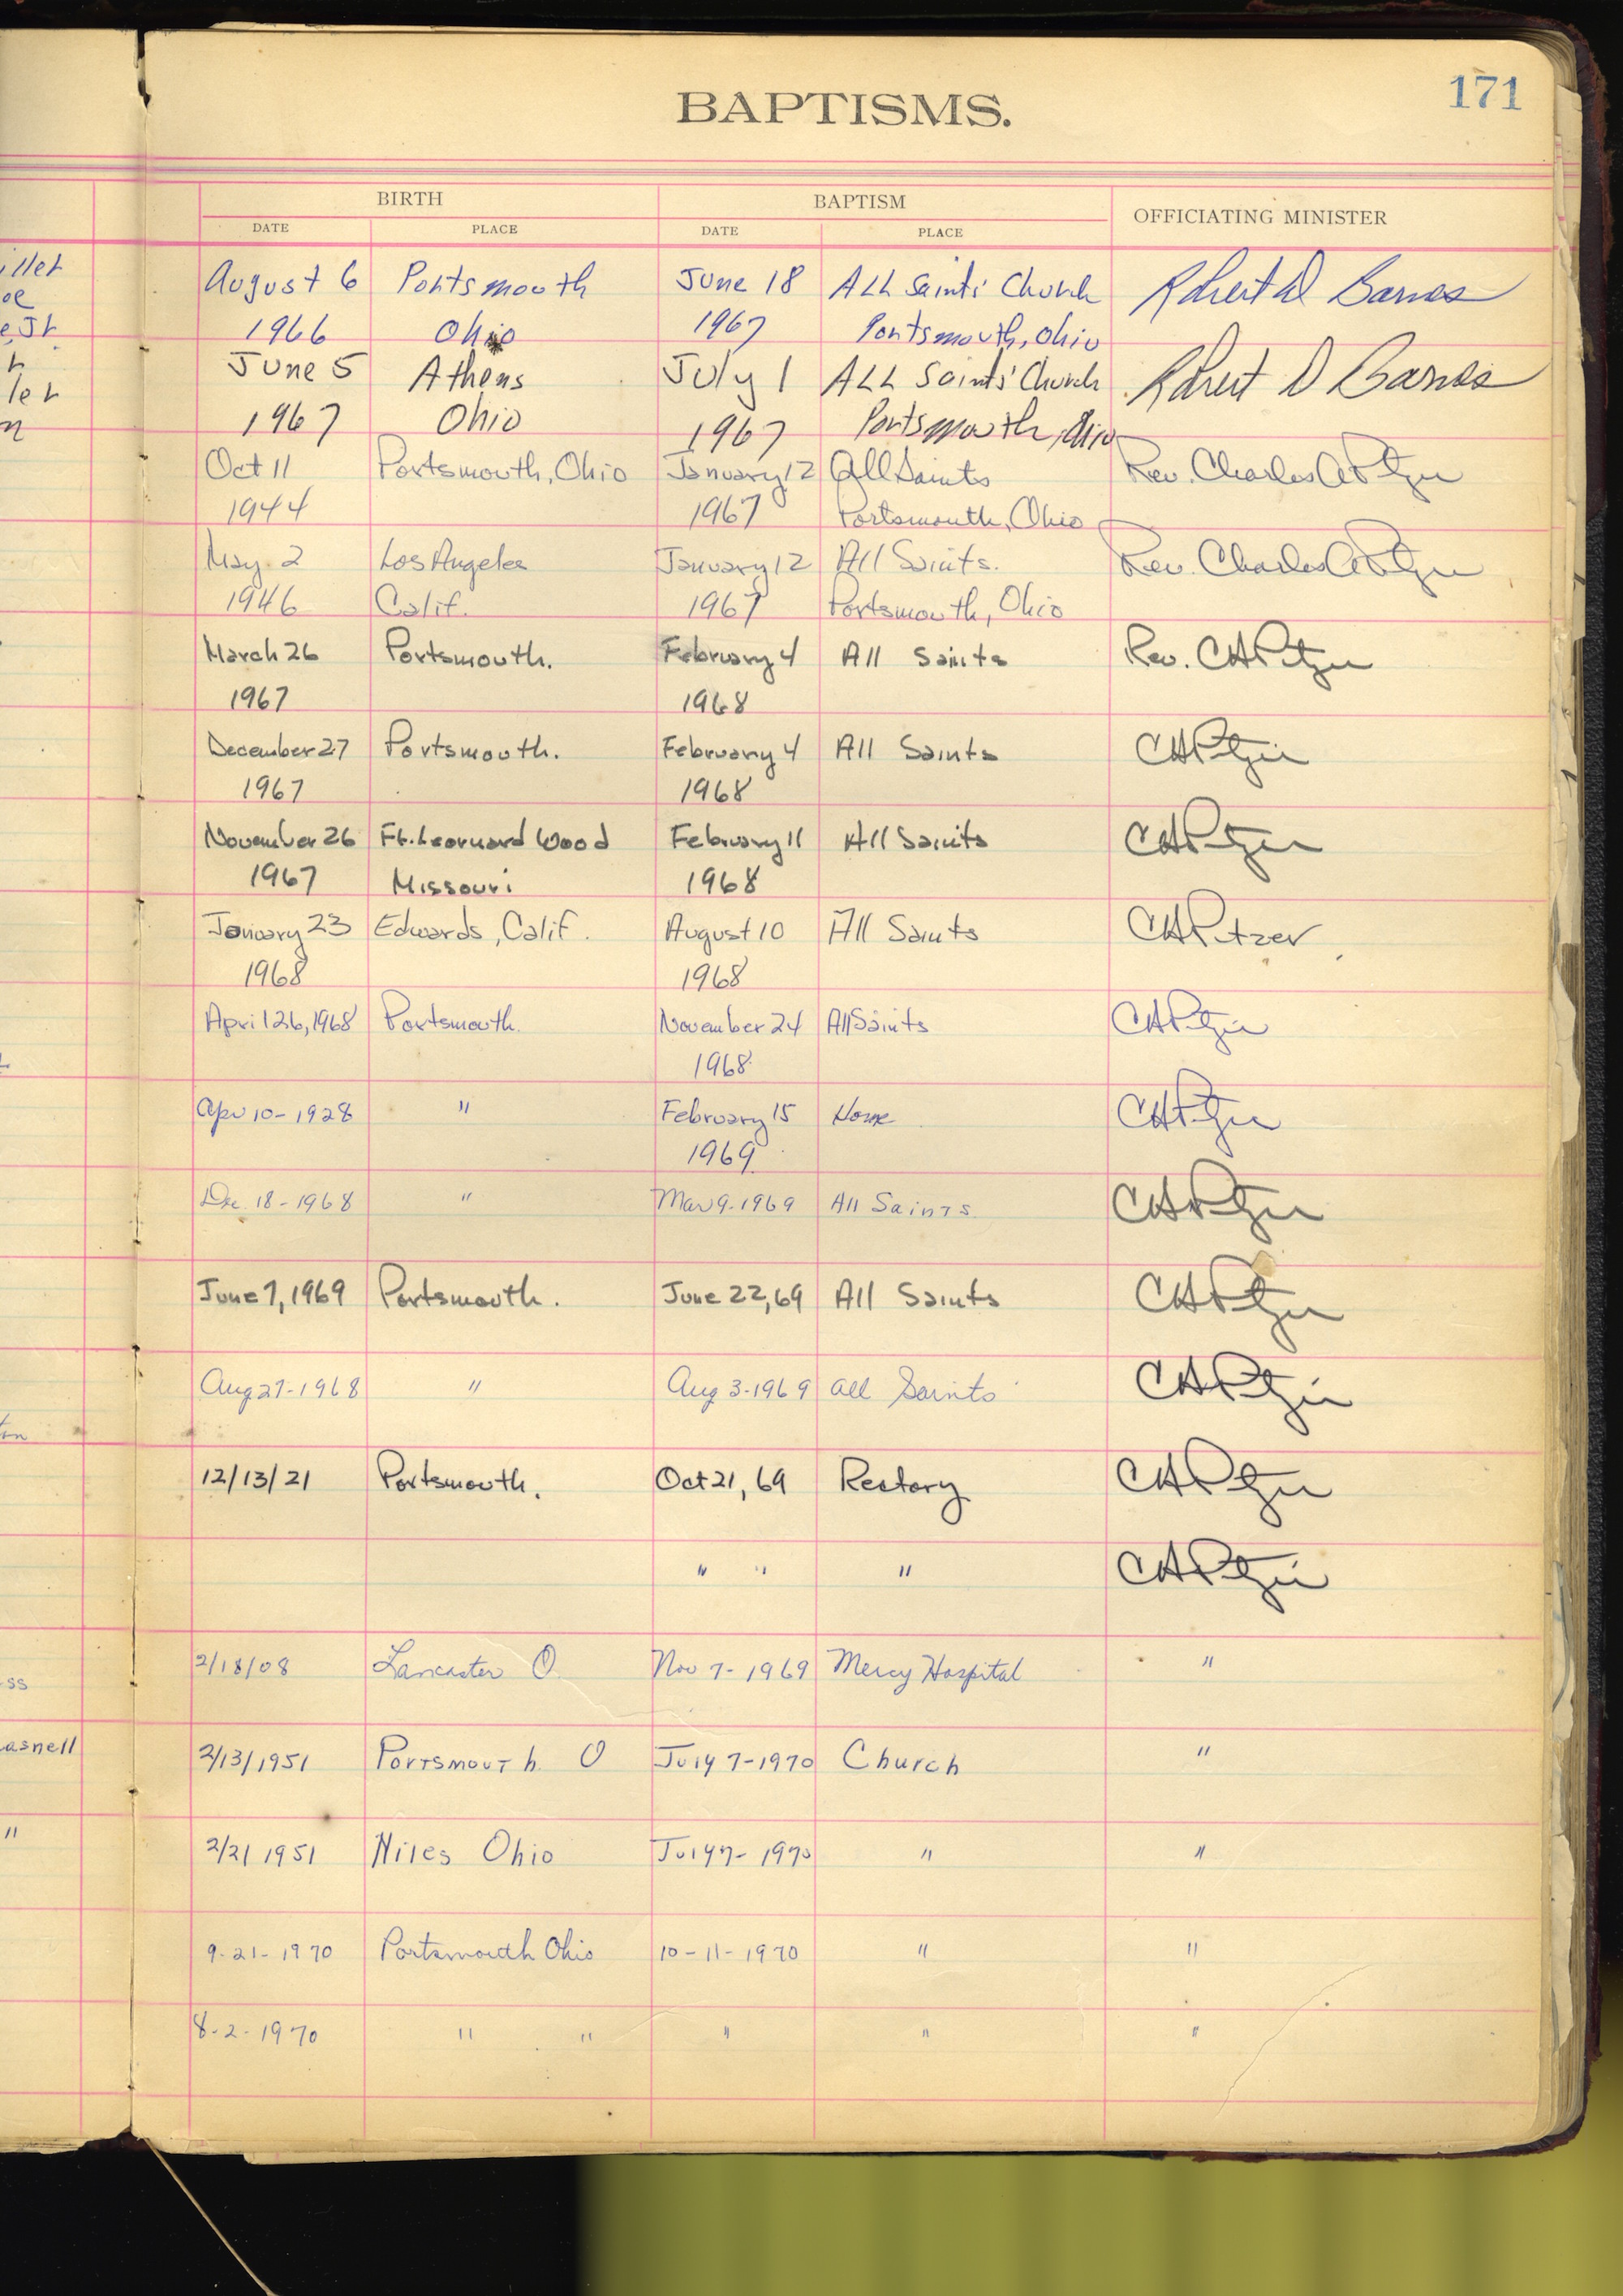 171
BAPTISMS.
BIRTH BAPTISM OFFICIATING MINISTER
DATE PLACE DATE PLACE
August 6 Portsmouth June 18 All Saints' Church Robert D Barnes
1966 Ohio 1967 Portsmouth, Ohio
June 5 Athens July 1 All Saints' Church Robert D Barnes
1967 Ohio 1967 Portsmouth, Ohio
Oct 11 Portsmouth, Ohio January 12 All Saints Rev. Charles A Pitzer
1944 1967 Portsmouth, Ohio
May 2 Los Angeles January 12 All Saints. Rev. Charles A Pitzer
1946 Calif. 1967 Portsmouth, Ohio
March 26 Portsmouth. February 4 All Saints Rev. CAPitzer
1967 1968
December 27 Portsmouth. February 4 All Saints CAPitzer
1967 1968
November 26 Ft. Leornard Wood February 11 All Saints CAPitzer
1967 Missouri 1968
January 23 Edwards, Calif. August 10 All Saints CAPitzer
1968 1968
April 26, 1968 Portsmouth. November 24 All Saints CAPitzer
1968
Apr 10-1928 " February 15 Home CAPitzer
1969
Dec 18-1968 " Mar 9-1969 All Saints CAPitzer
June 7, 1969 Portsmouth. June 22, 69 All Saints CAPitzer
Aug 27-1968 " Aug 3-1969 All Saints CAPitzer
12/13/21 Portsmouth. Oct 21, 69 Rectory CAPitzer
" " " CAPitzer
2/18/08 Lancaster O. Nov 7-1969 Mercy Hospital "
ss
asnell 2/13/1951 Portsmouth O July 7-1970 Church "
" 2/21 1951 Niles Ohio July 7-1970 " "
9-21-1970 Portsmouth Ohio 10-11-1970 " "
8-2-1970 " " " " "